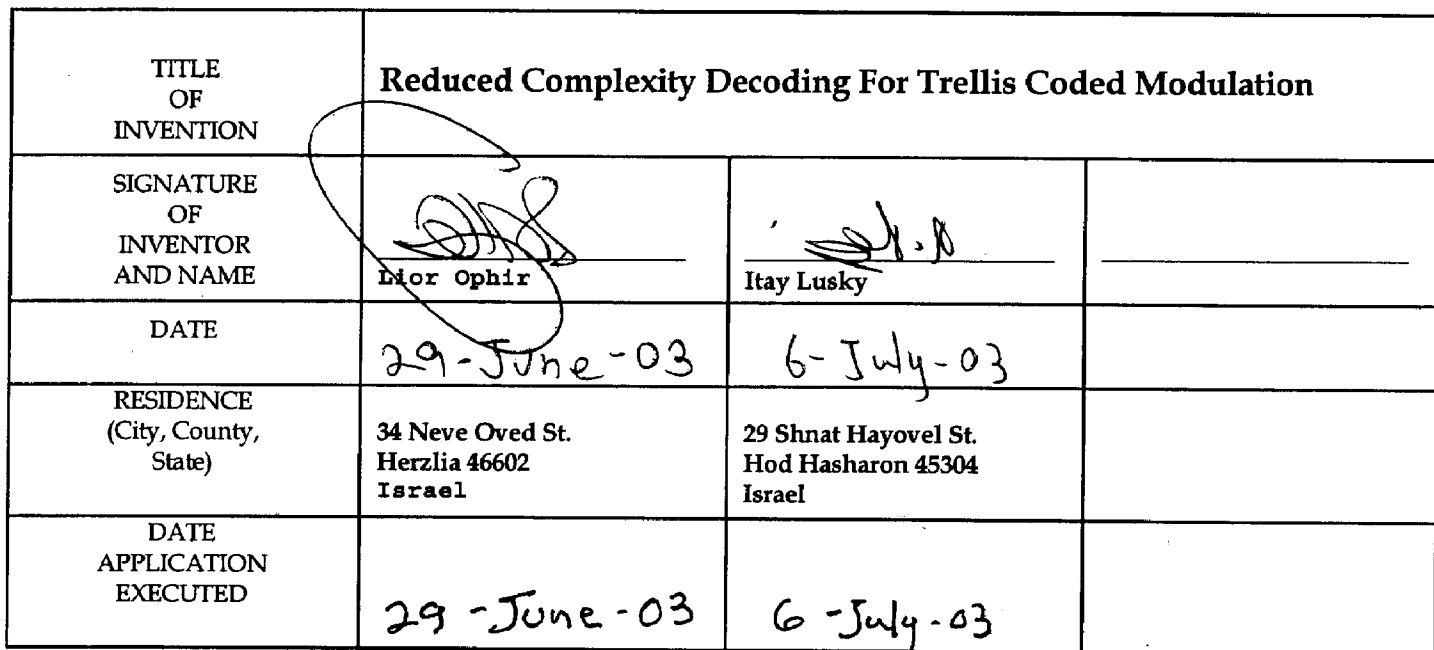 TITLE
OF
INVENTION
Reduced Complexity Decoding For Trellis Coded Modulation
SIGNATURE
OF
INVENTOR
AND NAME
Lior Ophir
Itay Lusky
DATE
29-June-03
6-July-03
RESIDENCE
(City, County,
State)
34 Neve Oved St.
Herzlia 46602
Israel
29 Shnat Hayovel St.
Hod Hasharon 45304
Israel
DATE
APPLICATION
EXECUTED
29-June-03
6-July-03